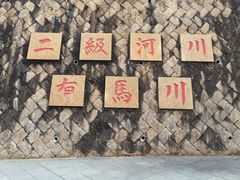 二級河川
有馬川